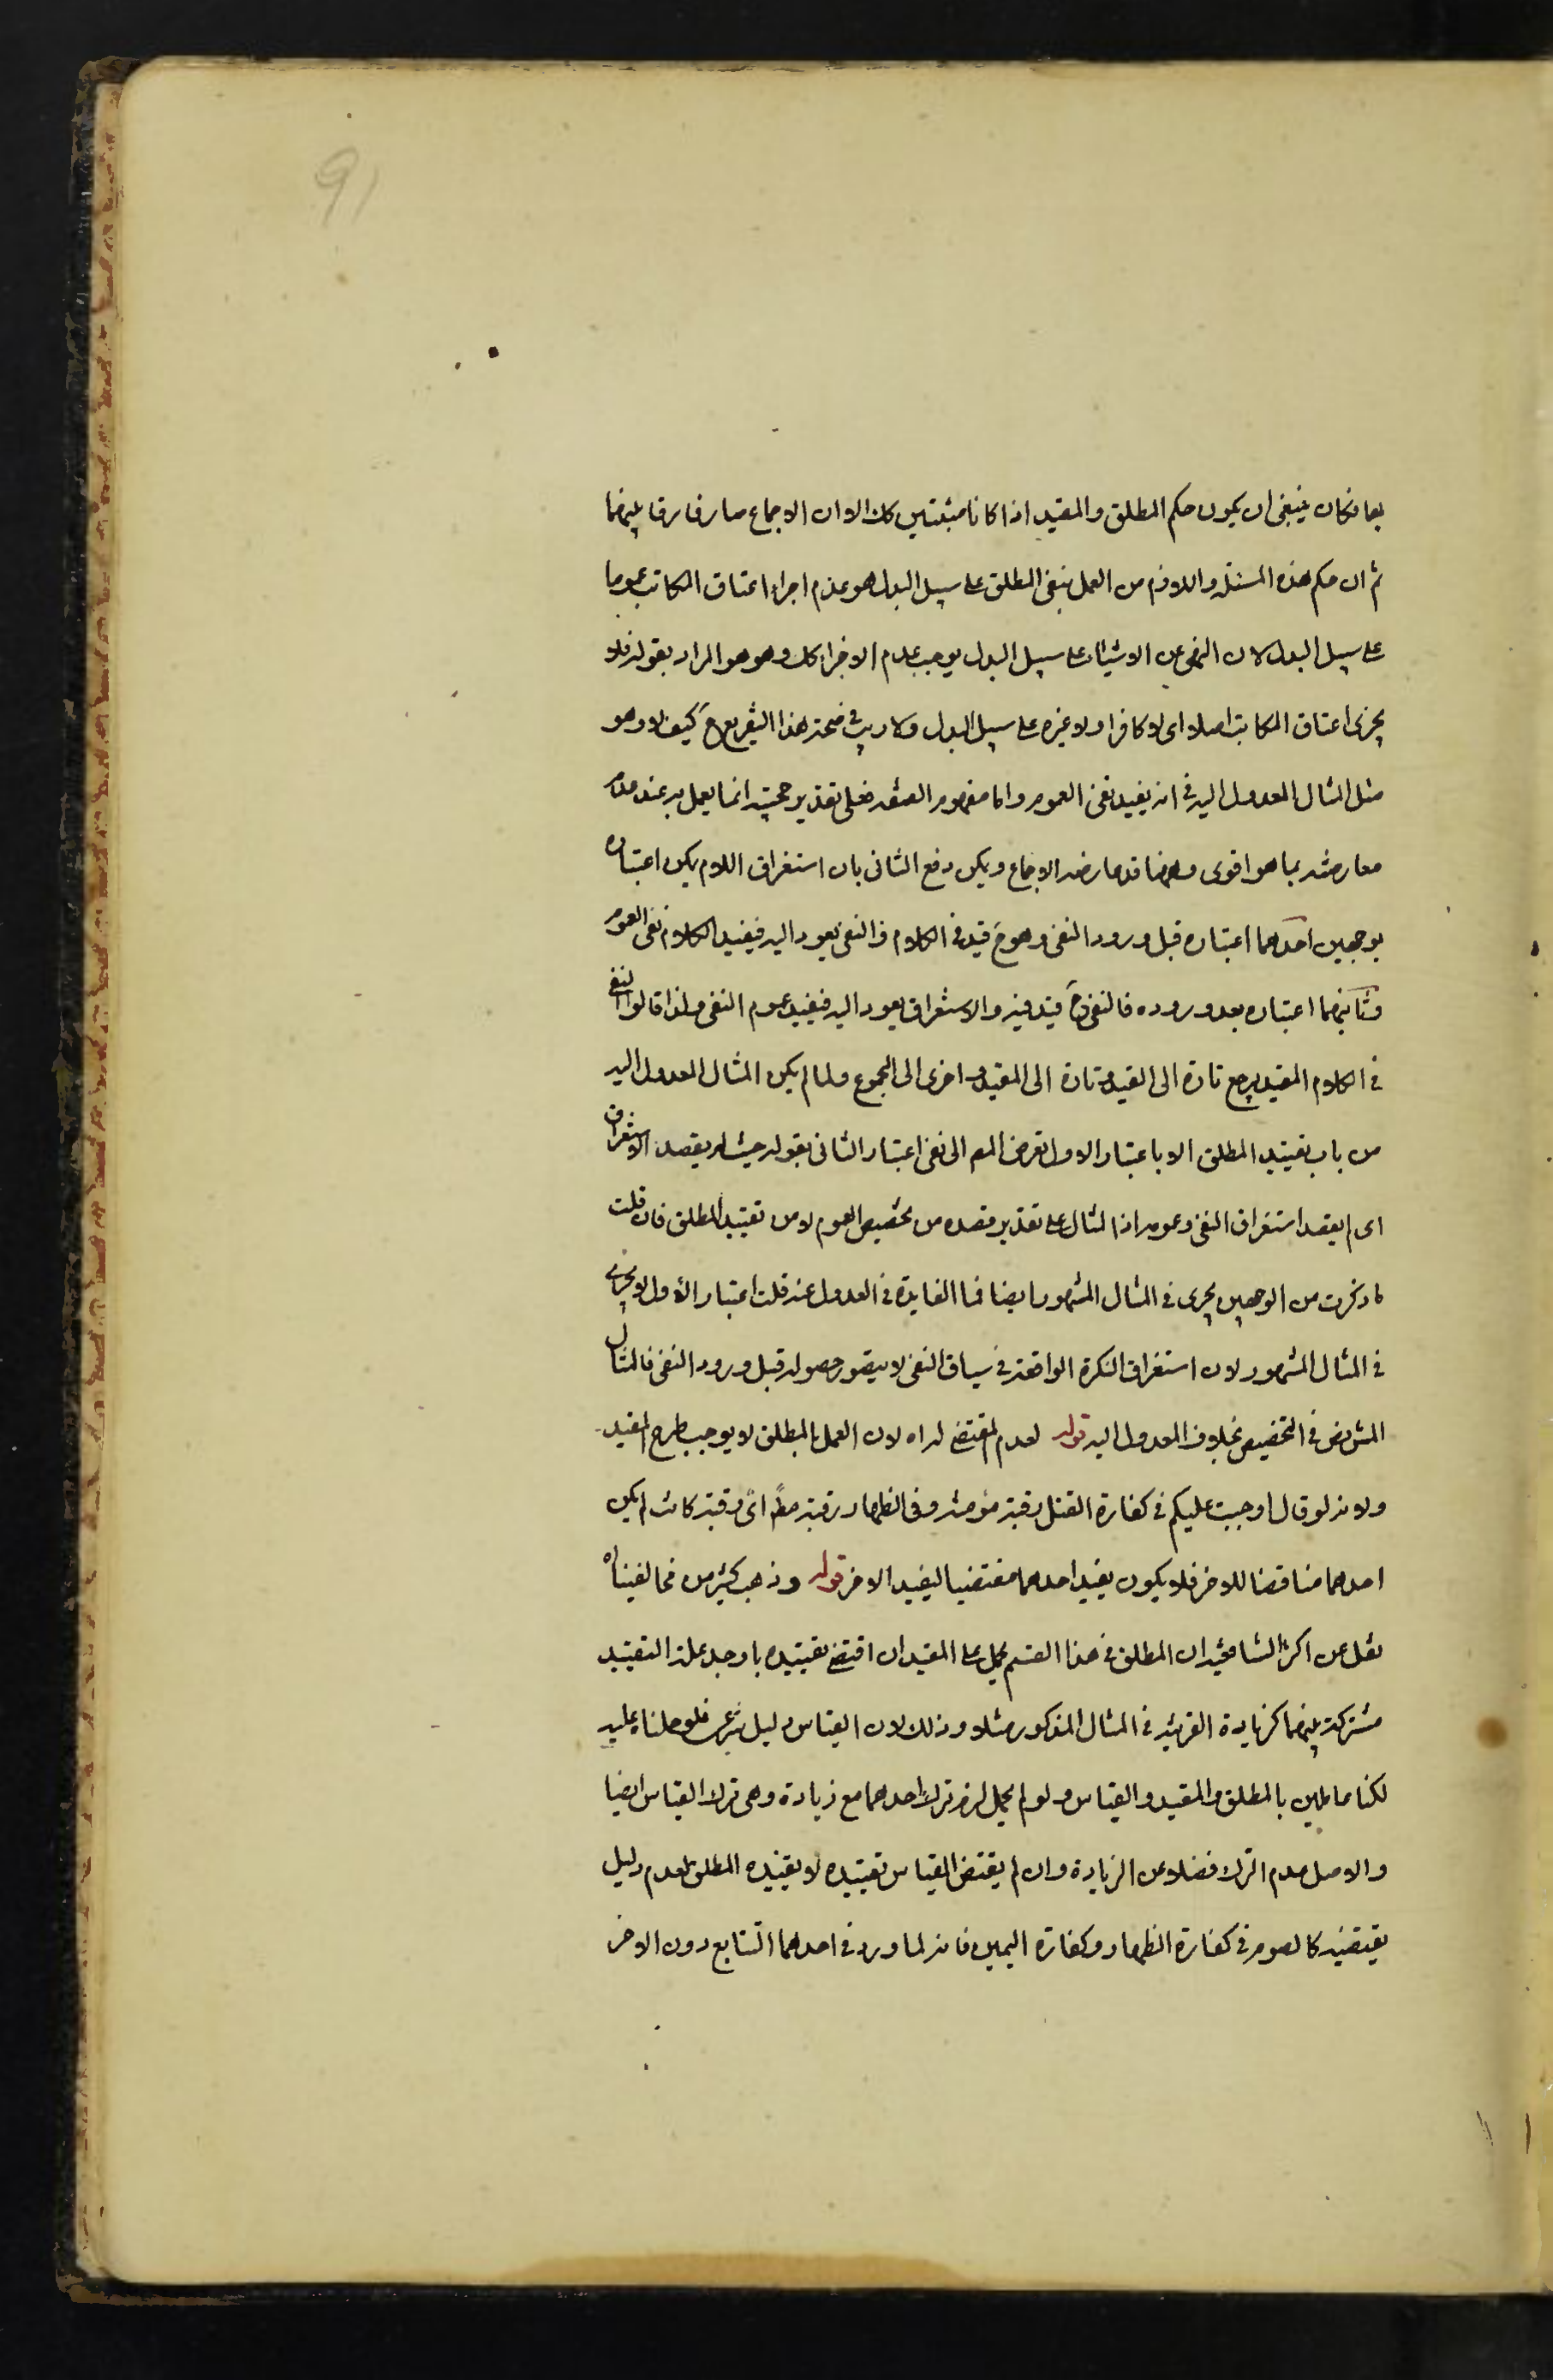 91
بهما فكان ينبغى ان يكون حكم المطلق والمقيد اذا كانا مثبتين كك الا ان الاجماع صار فارقا بينهما
ثم ان حكم هذه المسئلة واللازم من العمل بنفى المطلق على سبيل البدل هو عدم اجزاء اعتاق المكاتب عموما
على سبيل البدل لان النهى عن الاشياء على سبيل البدل يوجب عدم الاجزاء كك وهو هو المراد بقوله فلا
يجزى اعتاق المكاتب اصلا اى لا كافرا ولا غيره على سبيل البدل ولا ريب فى صحة هذا التفريع ح كيف لا وهو
مثل المثال المعدول اليه فى انه يفيد نفى العموم واما مفهوم الصفة فعلى تقدير حجيته انما يعمل به عند عدم
معارضته بما هو اقوى وههنا قد عارضه الاجماع ويمكن دفع الثانى بان استغراق اللام يمكن اعتباره
بوجهين احدهما اعتباره قبل ورود النفى وهو ح قيد فى الكلام فالنفى يعود اليه فيفيد الكلام نفى العموم
وثانيهما اعتباره بعد وروده فالنفى ح قيد فيه والاستغراق يعود اليه فيفيد عموم النفى ولذا قالوا النفى
فى الكلام المقيد يرجع تارة الى القيد وتارة الى المقيد واخرى الى المجموع ولما لم يكن المثال المعدول اليه
من باب تقييد المطلق الا باعتبار الاول تعرض المص الى نفى اعتبار الثانى بقوله حيث لم يقصد الاستغراق
اى لم يقصد استغراق النفى وعمومه اذ المثال على تقدير قصده من تخصيص العموم لا من تقييد المطلق فان قلت
ما ذكرت من الوجهين يجرى فى المثال المشهور ايضا فما الفايدة فى العدول عنه قلت اعتبار الاول لا يجرى
فى المثال المشهور لان استغراق النكرة الواقعة فى سياق النفى لا يتصور حصوله قبل ورود النفى فالمثال
المش نص فى التخصيص بخلاف المعدول اليه قوله لعدم المقتضى له اه لان العمل بالمطلق لا يوجب طرح المقيد
ولانه لو قال اوجبت عليكم فى كفارة القتل رقبة مؤمنة وفى الظهار رقبة مط اى رقبة كانت لم يكن
احدهما مناقضا للاخر فلا يكون تقييد احدهما مقتضيا لتقييد الاخر قوله وذهب كثير من مخالفيناه
نقل عن اكثر الشافعية ان المطلق فى هذا القسم يحمل على المقيد ان اقتضى تقييده بان وجد علة التقييد
مشتركة بينهما كزيادة القربة فى المثال المذكور مثلا وذلك لان القياس دليل شرعى فلو حملناه عليه
لكنا عاملين بالمطلق والمقيد والقياس ولو لم يحمل لزم ترك احدهما مع زيادة وهى ترك القياس ايضا
والاصل عدم الترك فضلا عن الزيادة وان لم يقتض القياس تقييده لا يقيده المطلق لعدم دليل
يقتضيه كالصوم فى كفارة الظهار وكفارة اليمين فانه لما ورد فى احدهما التتابع دون الاخر